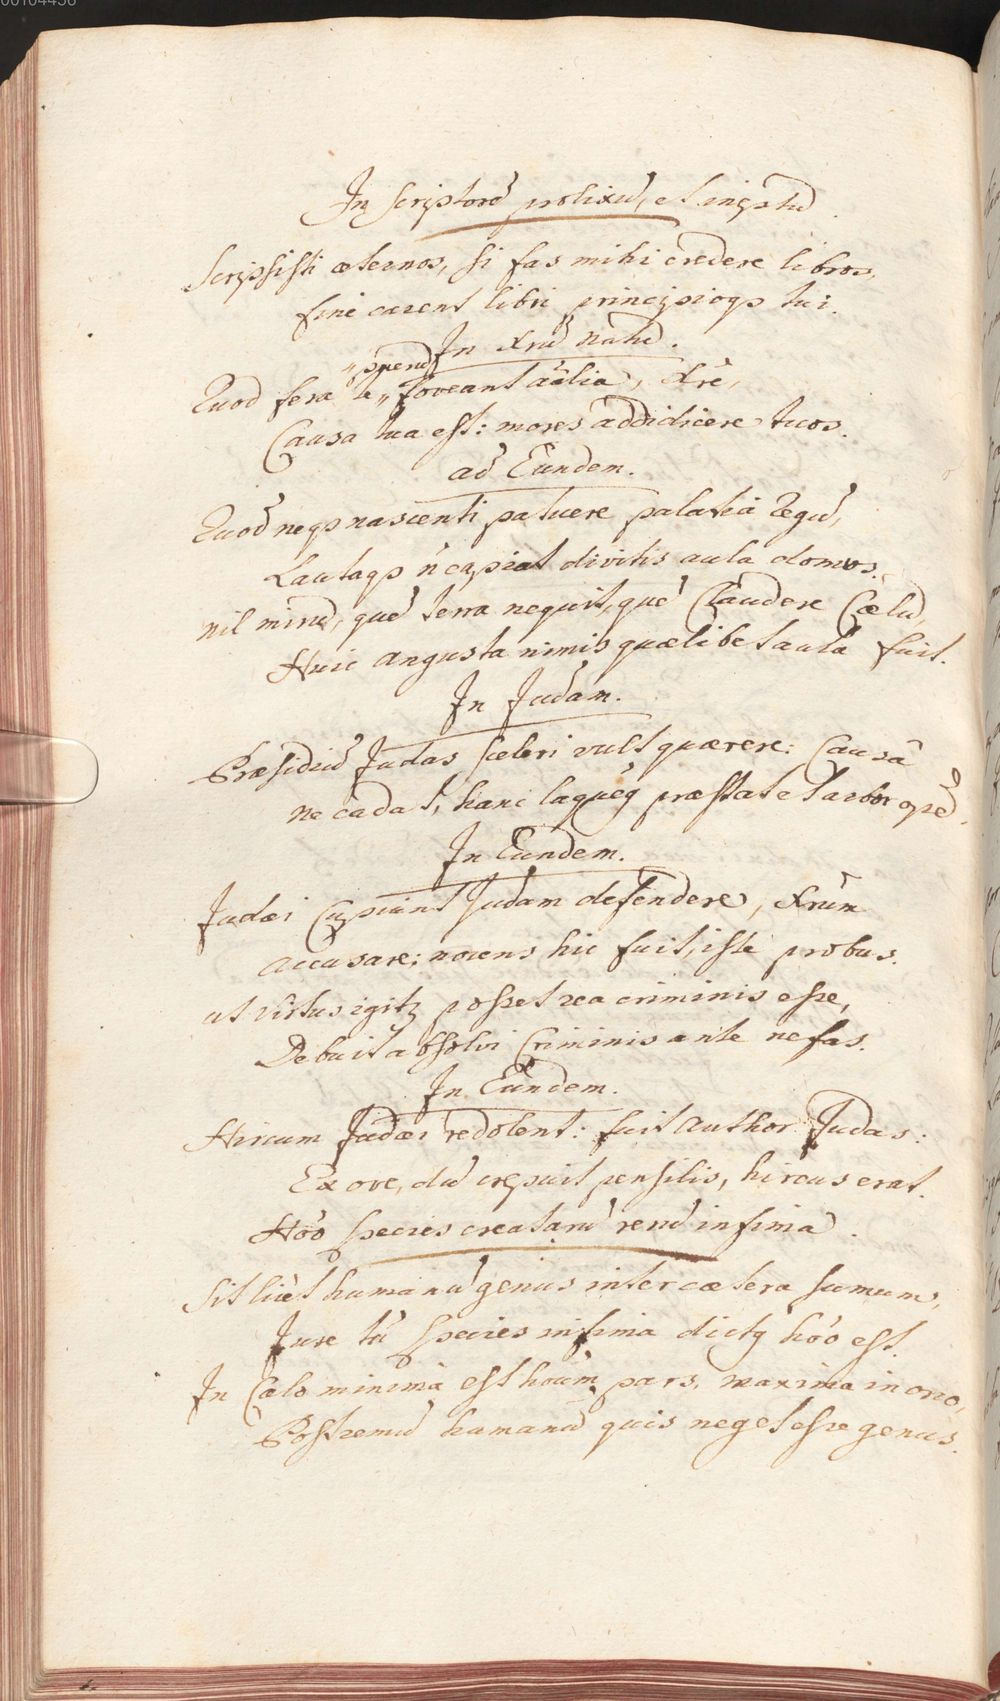 00104456
In scriptorē prolixū, et ineptū.
Scripsisti æternos, si fas mihi credere libros,
fine carent libri principioqȝ tui.
In Xrū natū.
Quod fera te „ puerū „ foveant aīalia, Xrē,
Causa tua est: mores addidicere tuos.
ad Eundem.
Quod neqȝ nascenti patuere palatia Regū,
Lautaqȝ ñ capiat divitis aula domos.
nil mirū, quē terra nequit, quē Claudere Cœlū,
Huic angusta nimis quælibet aula fuit.
In Judam.
Præsidiū Judas sceleri vult quærere: Causā
ne cadat, hanc laqueꝰ præstat et arbor opē.
In Eundem.
Judæi Cupiunt Judam defendere, Xrūm
accusare; nocens hic fuit, iste probus.
ut virtus igitȝ posset rea criminis esse,
Debuit absolvi Criminis ante nefas.
In Eundem.
Hircum Judæi redolent: fuit author Judas:
Ex ove, dū crepuit pensilis, hircus erat.
Hōo species creatarū rerū infima.
Sit licēt humanū genus inter cætera sumum,
Jure tn̄ species infima dictꝰ hōo est.
In Cælo minima est hoīum pars, maxima in orco,
Postremū humanū quis neget esse genus.